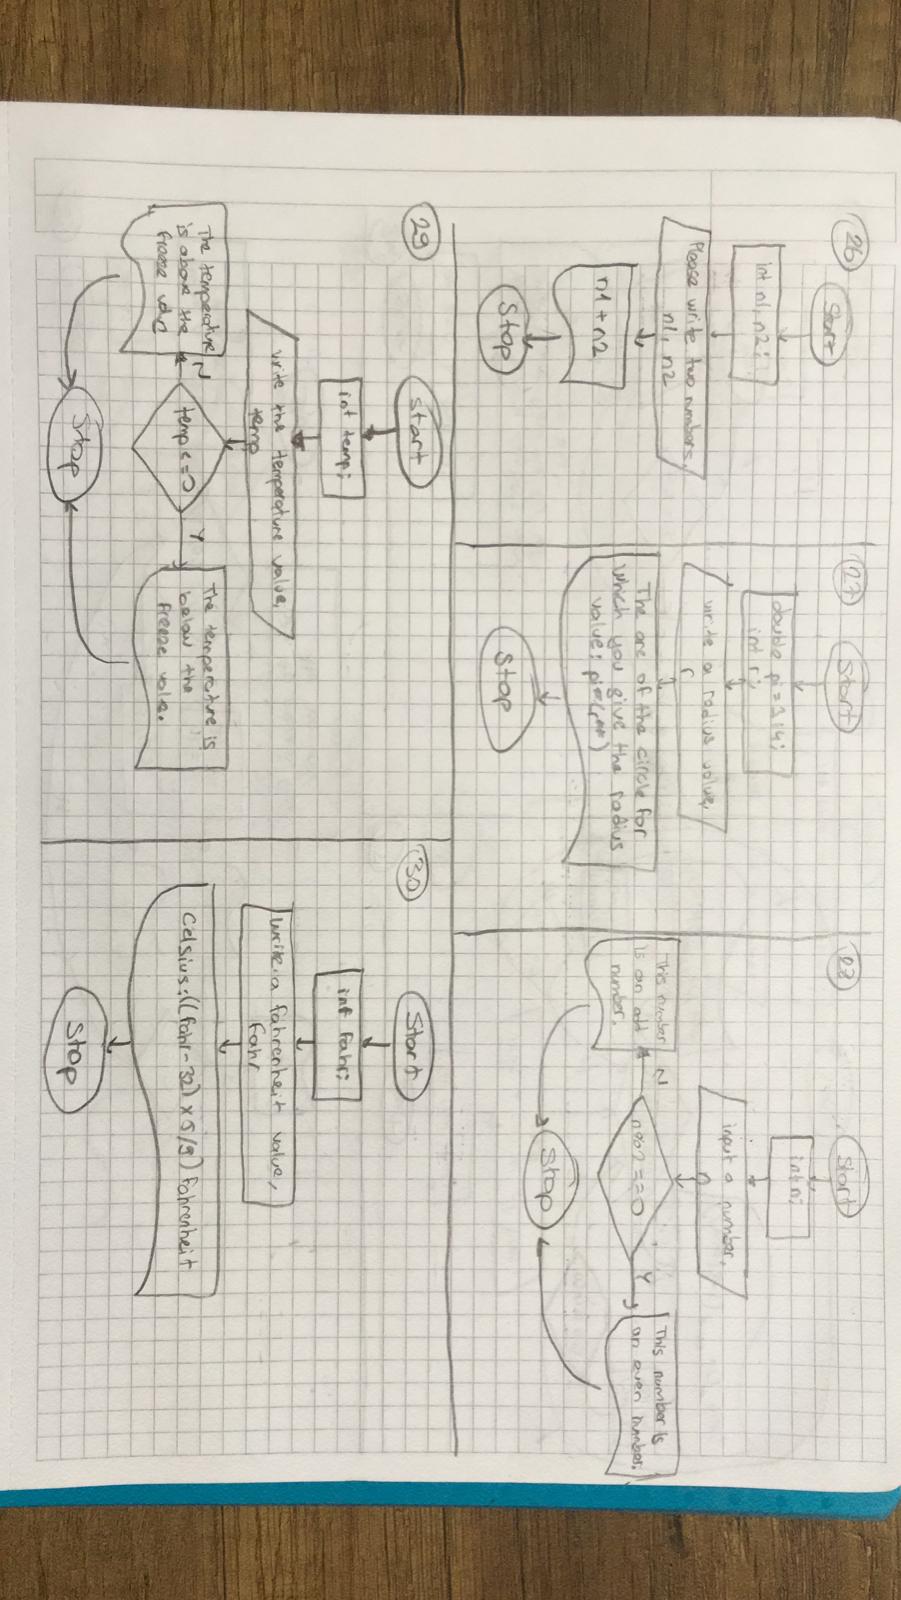 26
Start
int n1, n2;
Please write two numbers,
n1, n2
n1 + n2
Stop
27
Start
double pi = 3,14;
int r;
write a radius value,
r
The are of the circle for
which you give the radius
value: pi*(r**)
Stop
28
Start
int n;
input a number,
n
n%2 == 0
N
This number
is an odd
number.
Y
This number is
an even number.
Stop
29
Start
int temp;
write the temperature value,
temp
temp <= 0
N
The temperature
is above the
freeze
Y
The temperature is
below the
freeze value.
Stop
30
Start
int fahr;
Write a fahrenheit value,
fahr
Celsius: ((fahr - 32) x 5/9) fahrenheit
Stop